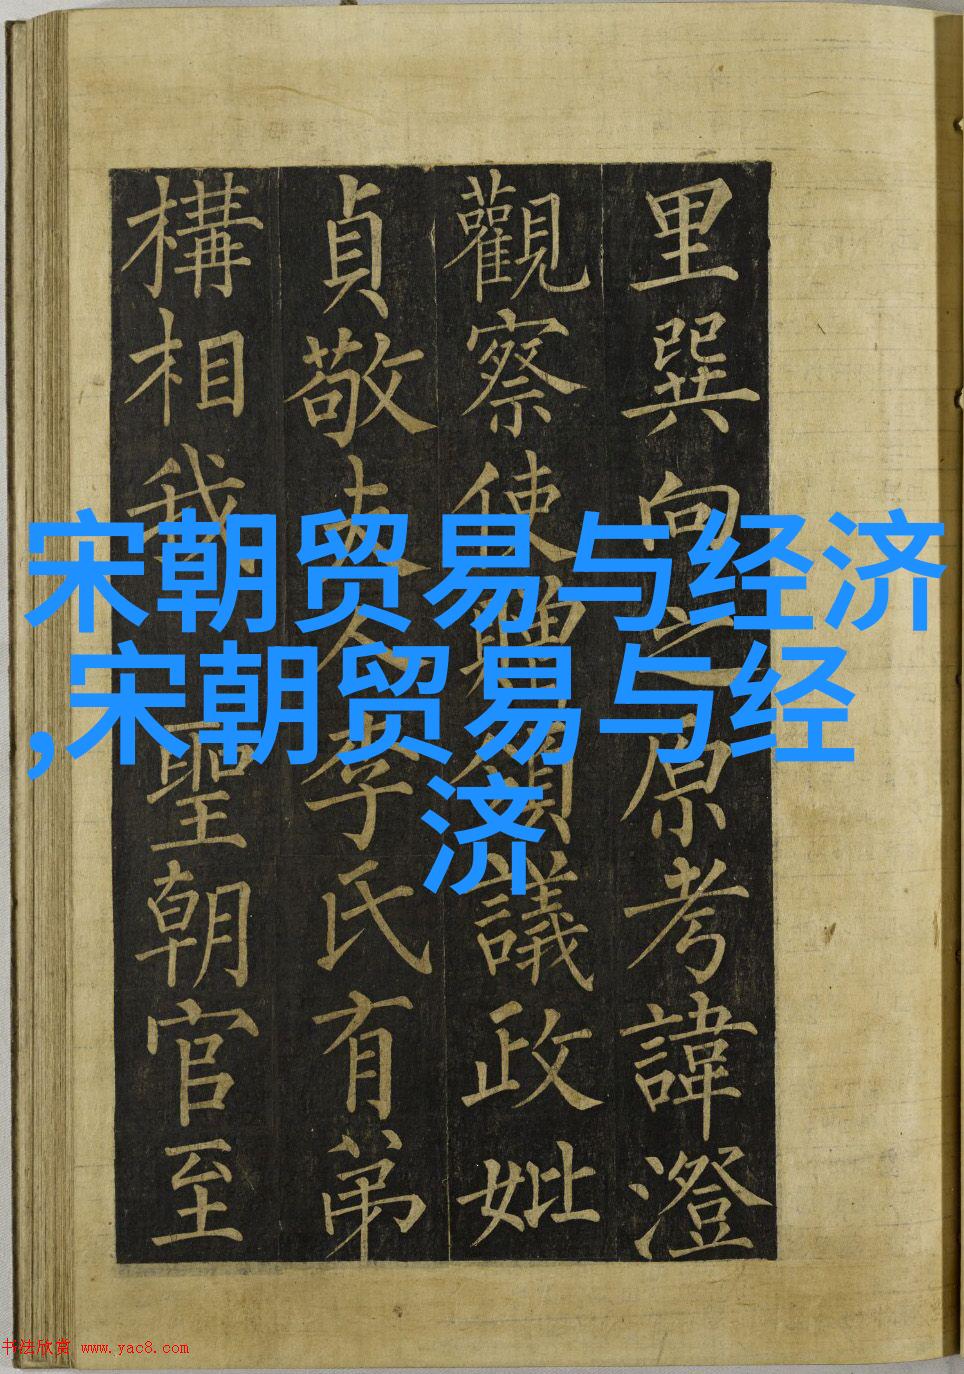 里巽向之原考諱澄
觀察使贈諫議政妣
貞敬夫人李氏有弟
構相我聖朝官至
宋朝贸易与经济
,宋朝贸易与经
济
书法欣赏 www.yac8.com